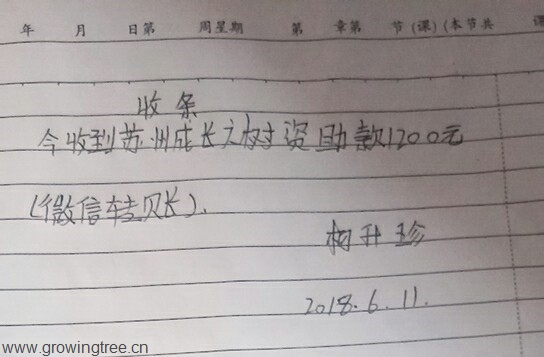 年 月 日第 周星期 第 章第 节(课)(本节共 课
收条
今收到苏州成长之树资助款1200元
(微信转账).
柯升珍
2018.6.11.
www.growingtree.cn